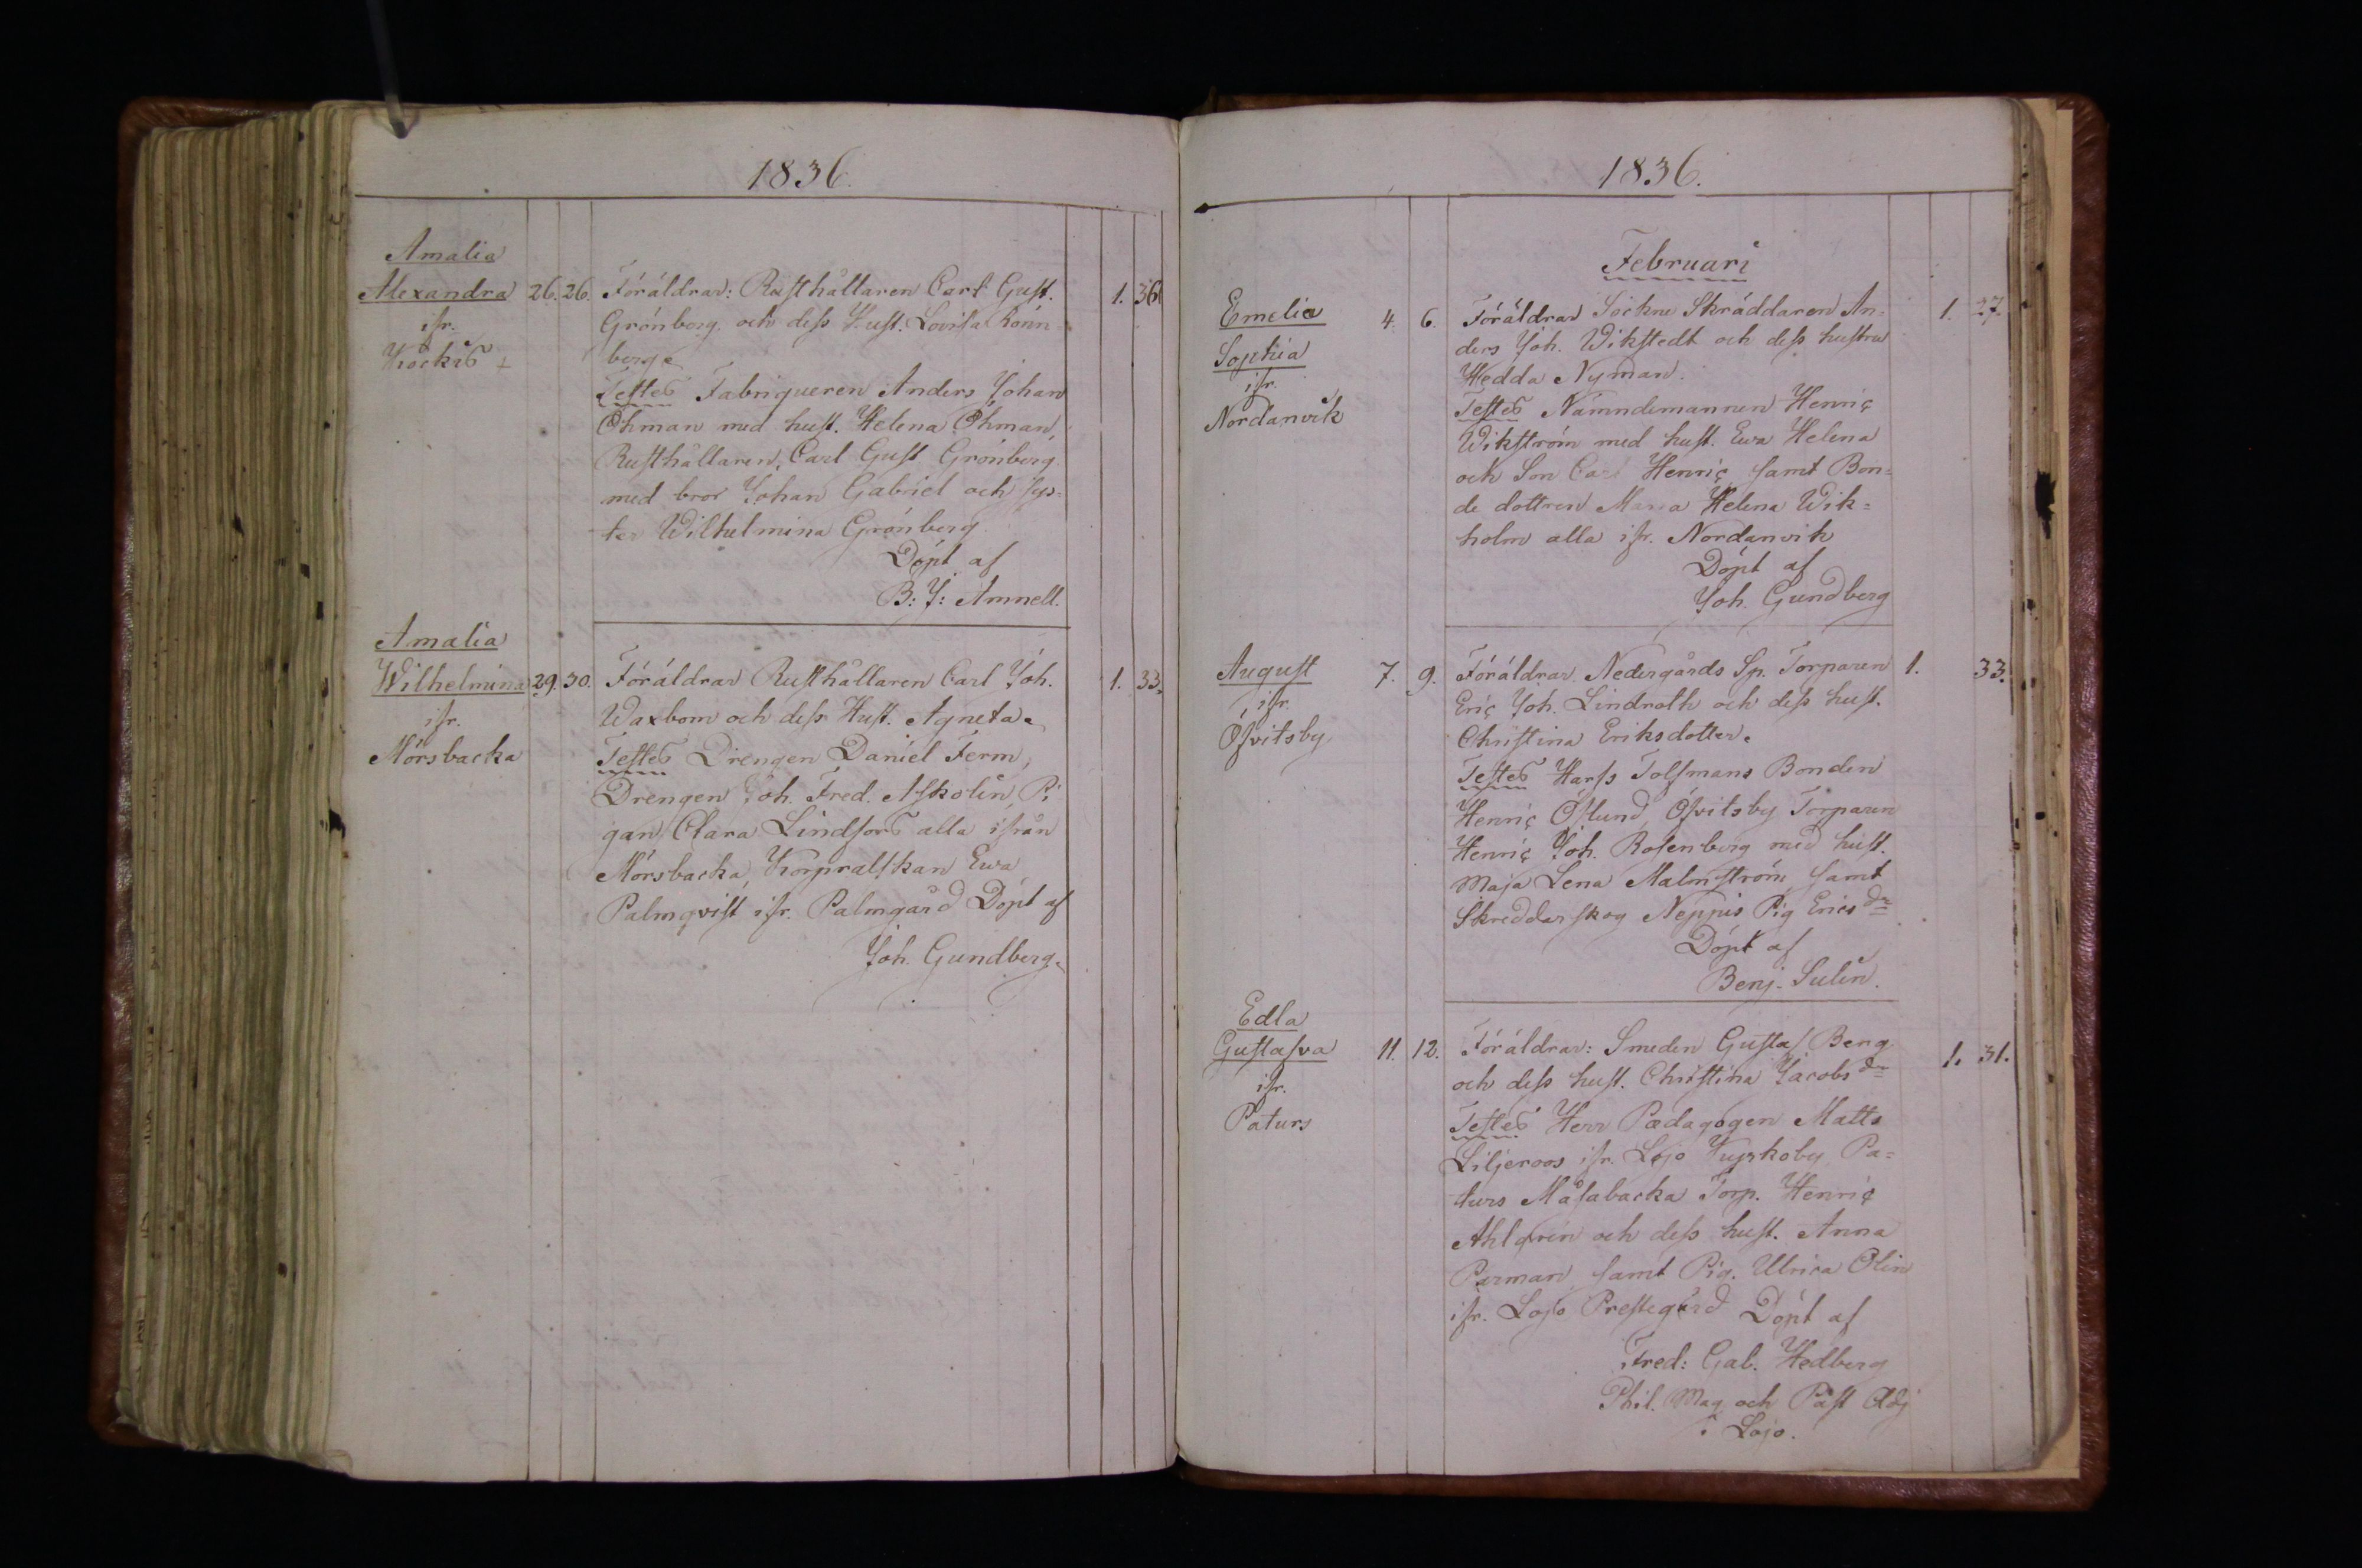 1836.
Amalia
Alexandra 26. 26. Föräldrar: Rusthållaren Carl Gust. 1. 36
ifr.
Grönberg och dess Hust. Lovisa Rönn-
Kockis +
berg.
Testes Fabriqueren Anders Johan
Öhman med hust. Helena Öhman,
Rusthållaren, Carl Gust Grönberg
med bror Johan Gabriel och sys-
ter Wilhelmina Grönberg
Döpt af
B: J: Amnell.
Amalia
Wilhelmina 29. 30. Föräldrar Rusthållaren Carl Joh. 1. 33.
ifr.
Waxbom och dess Hust. Agneta.
Mörsbacka
Testes Drengen Daniel Ferm,
Drengen Joh. Fred. Askolin, Pi
gan Clara Lindfors alla ifrån
Mörsbacka, Korpralskan Ewa
Palmqvist ifr. Palmgård Döpt af
Joh. Gundberg.
1836.
Februari
Emelia 4. 6. Föräldrar Sockne Skräddaren An- 1. 27.
Sophia
ders Joh. Wikstedt och dess hustru
ifr.
Hedda Nyman.
Nordanvik
Testes Nämndemannen Henric
Wikström med hust. Ewa Helena
och Son Carl Henric samt Bon-
de dottren Maria Helena Wik-
holm alla ifr. Nordanvik
Döpt af
Joh. Gundberg
August 7. 9. Föräldrar Nedergårds Sp. Torparen 1. 33.
ifr.
Eric Joh. Lindroth och dess hust.
Öfvitsby
Christina Eriksdotter.
Testes Harfs Tolfmans Bonden
Henric Östlund, Öfvitsby Torparen
Henric Joh. Rosenberg med hust.
Maja Lena Malmström samt
Skreddarskog Neppis Pig Erics dr
Döpt af
Benj. Sulin.
Edla
Gustafva 11. 12. Föräldrar: Smeden Gustaf Berg 1. 31.
ifr.
och dess hust. Christina Jacobs dr
Paturs
Testes Herr Pædagogen Matts
Liljeroos ifr. Lojo Kyrkoby Pa-
turs Måsabacka Torp. Henric
Ahlgren och dess hust. Anna
Parman samt Pig. Ulrica Olin
ifr. Lojo Prestegård Döpt af
Fred: Gab. Hedberg
Phil. Mag och Past Adj
i Lojo.